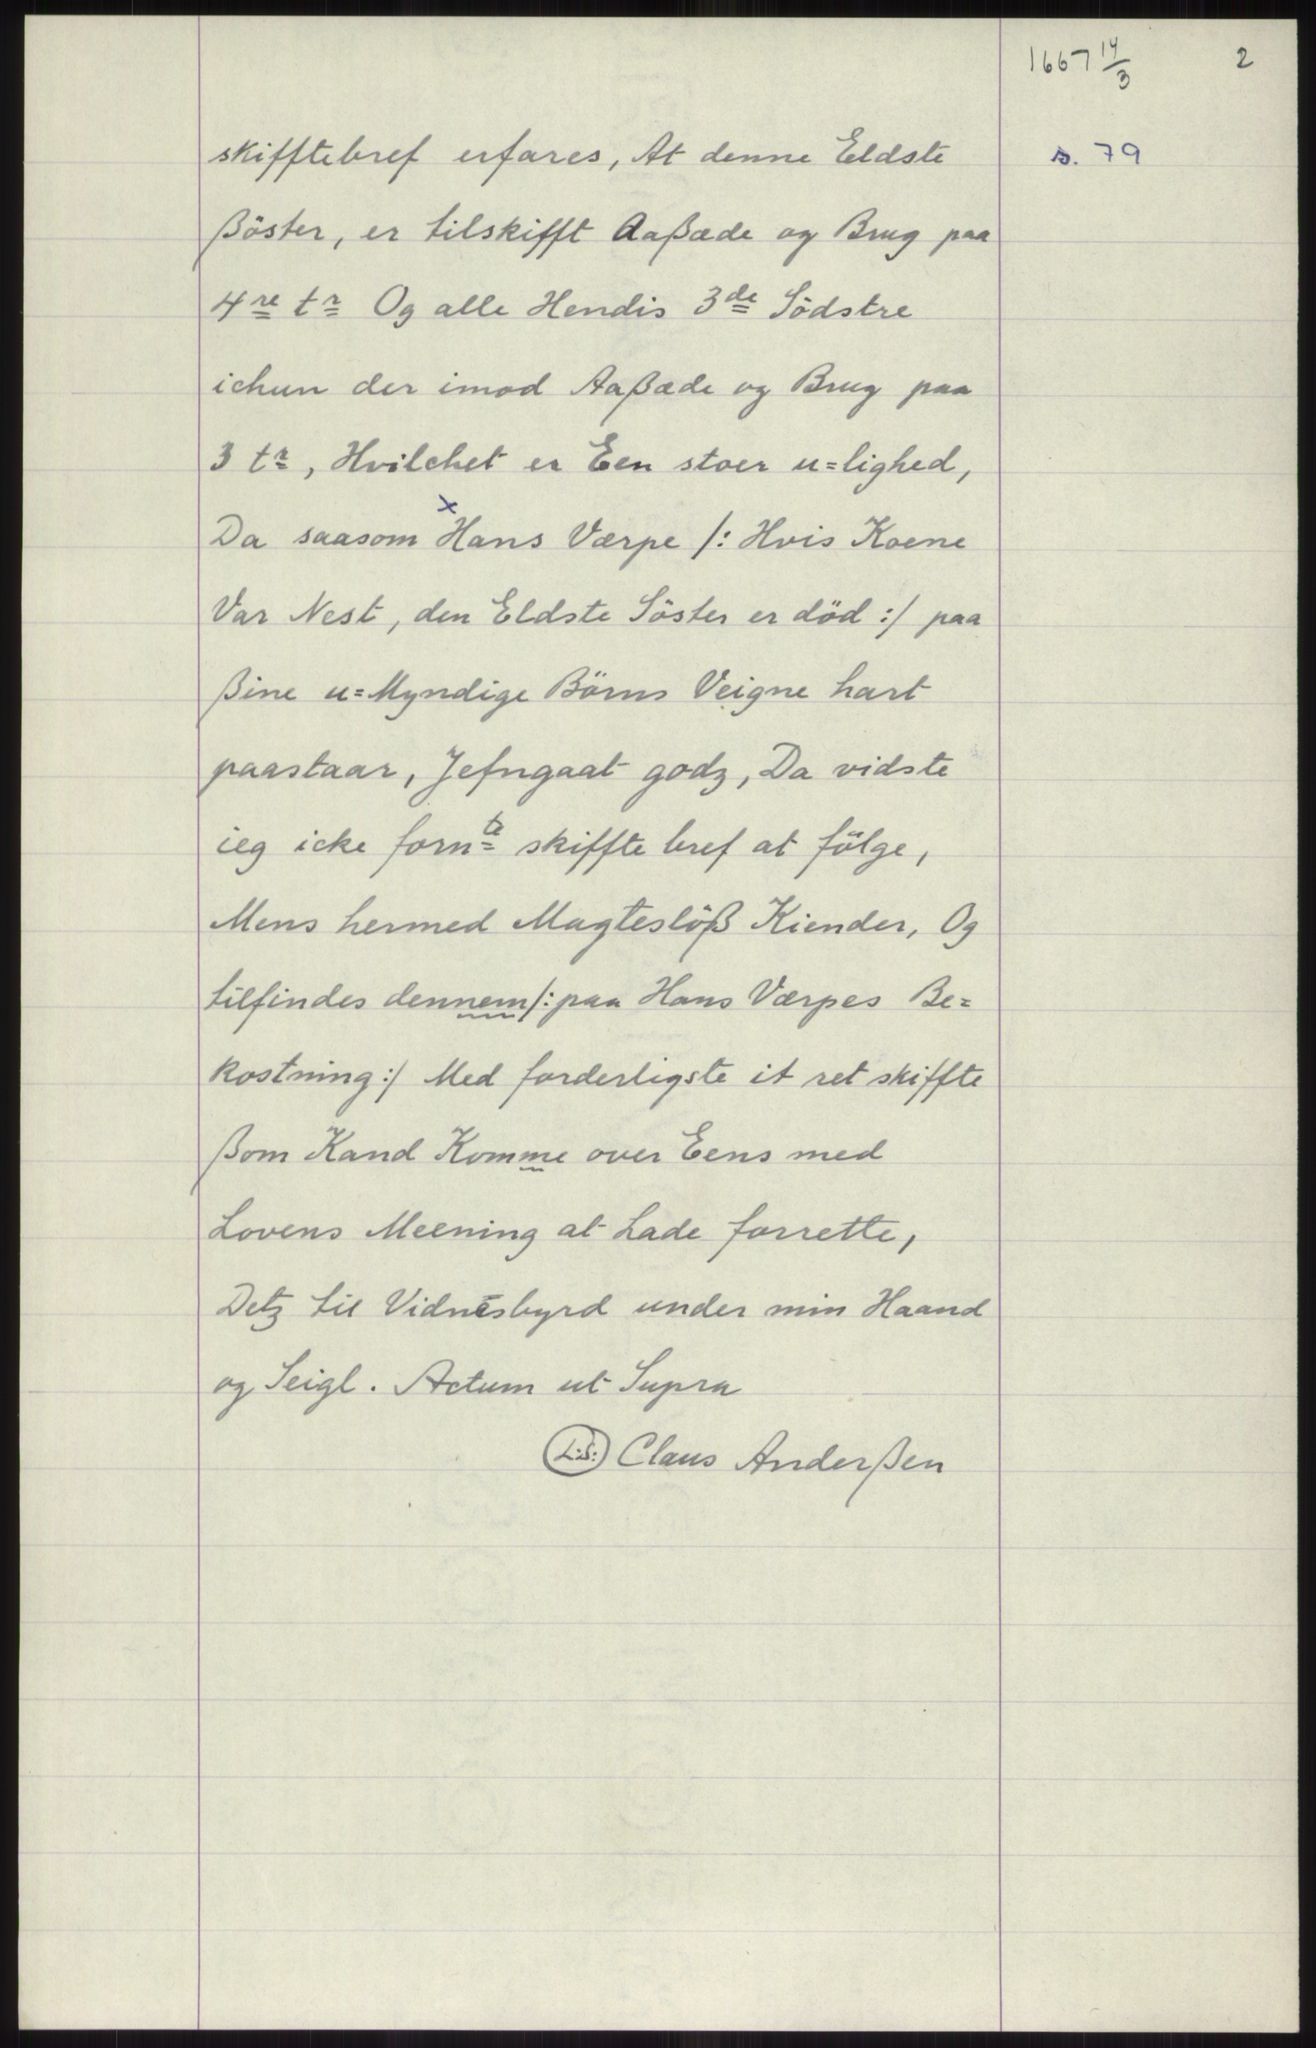 1667 14/3 2
s. 79
skifftebref erfares, At denne Eldste
ßöster, er tilskifft Aaßæde og Brug paa
4re tr Og alle Hendis 3de Södstre
ichun der imod Aaßæde og Brug paa
3 tr, Hvilchet er Een stoer u=lighed,
Da saasom xHans Værpe /: Hvis Koene
Var Nest, den Eldste Söster er död :/ paa
ßine u=Myndige Börns Veigne hart
paastaar, Jefngaat godz, Da vidste
ieg icke fornte skiffte bref at fölge,
Mens hermed Magteslöß Kiender, Og
tilfindes dennem/: paa Hans Værpes Be=
kostning :/ Med forderligste it ret skiffte
ßom Kand Komme over Eens med
Lovens Meening at Lade forrette,
Detz til Vidnesbyrd under min Haand
og Seigl. Actum ut Supra
L.S: Claus Anderßen